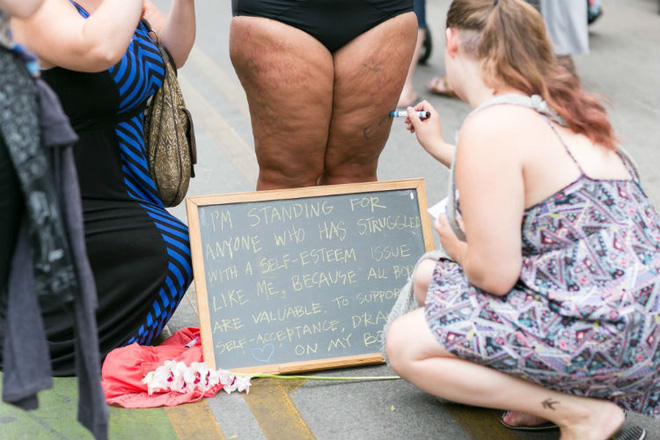 I'M STANDING FOR
ANYONE WHO HAS STRUGGLED
WITH A SELF-ESTEEM ISSUE
LIKE ME, BECAUSE ALL
ARE VALUABLE. TO SUPPORT
SELF-ACCEPTANCE,
ON MY